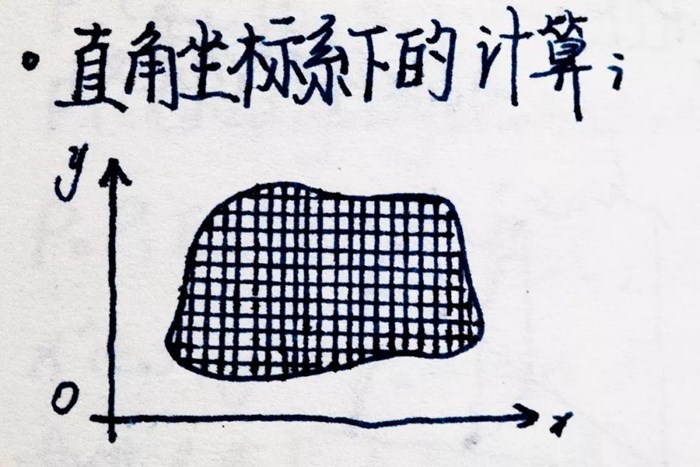 • 直角坐标系下的计算;
y
0
x